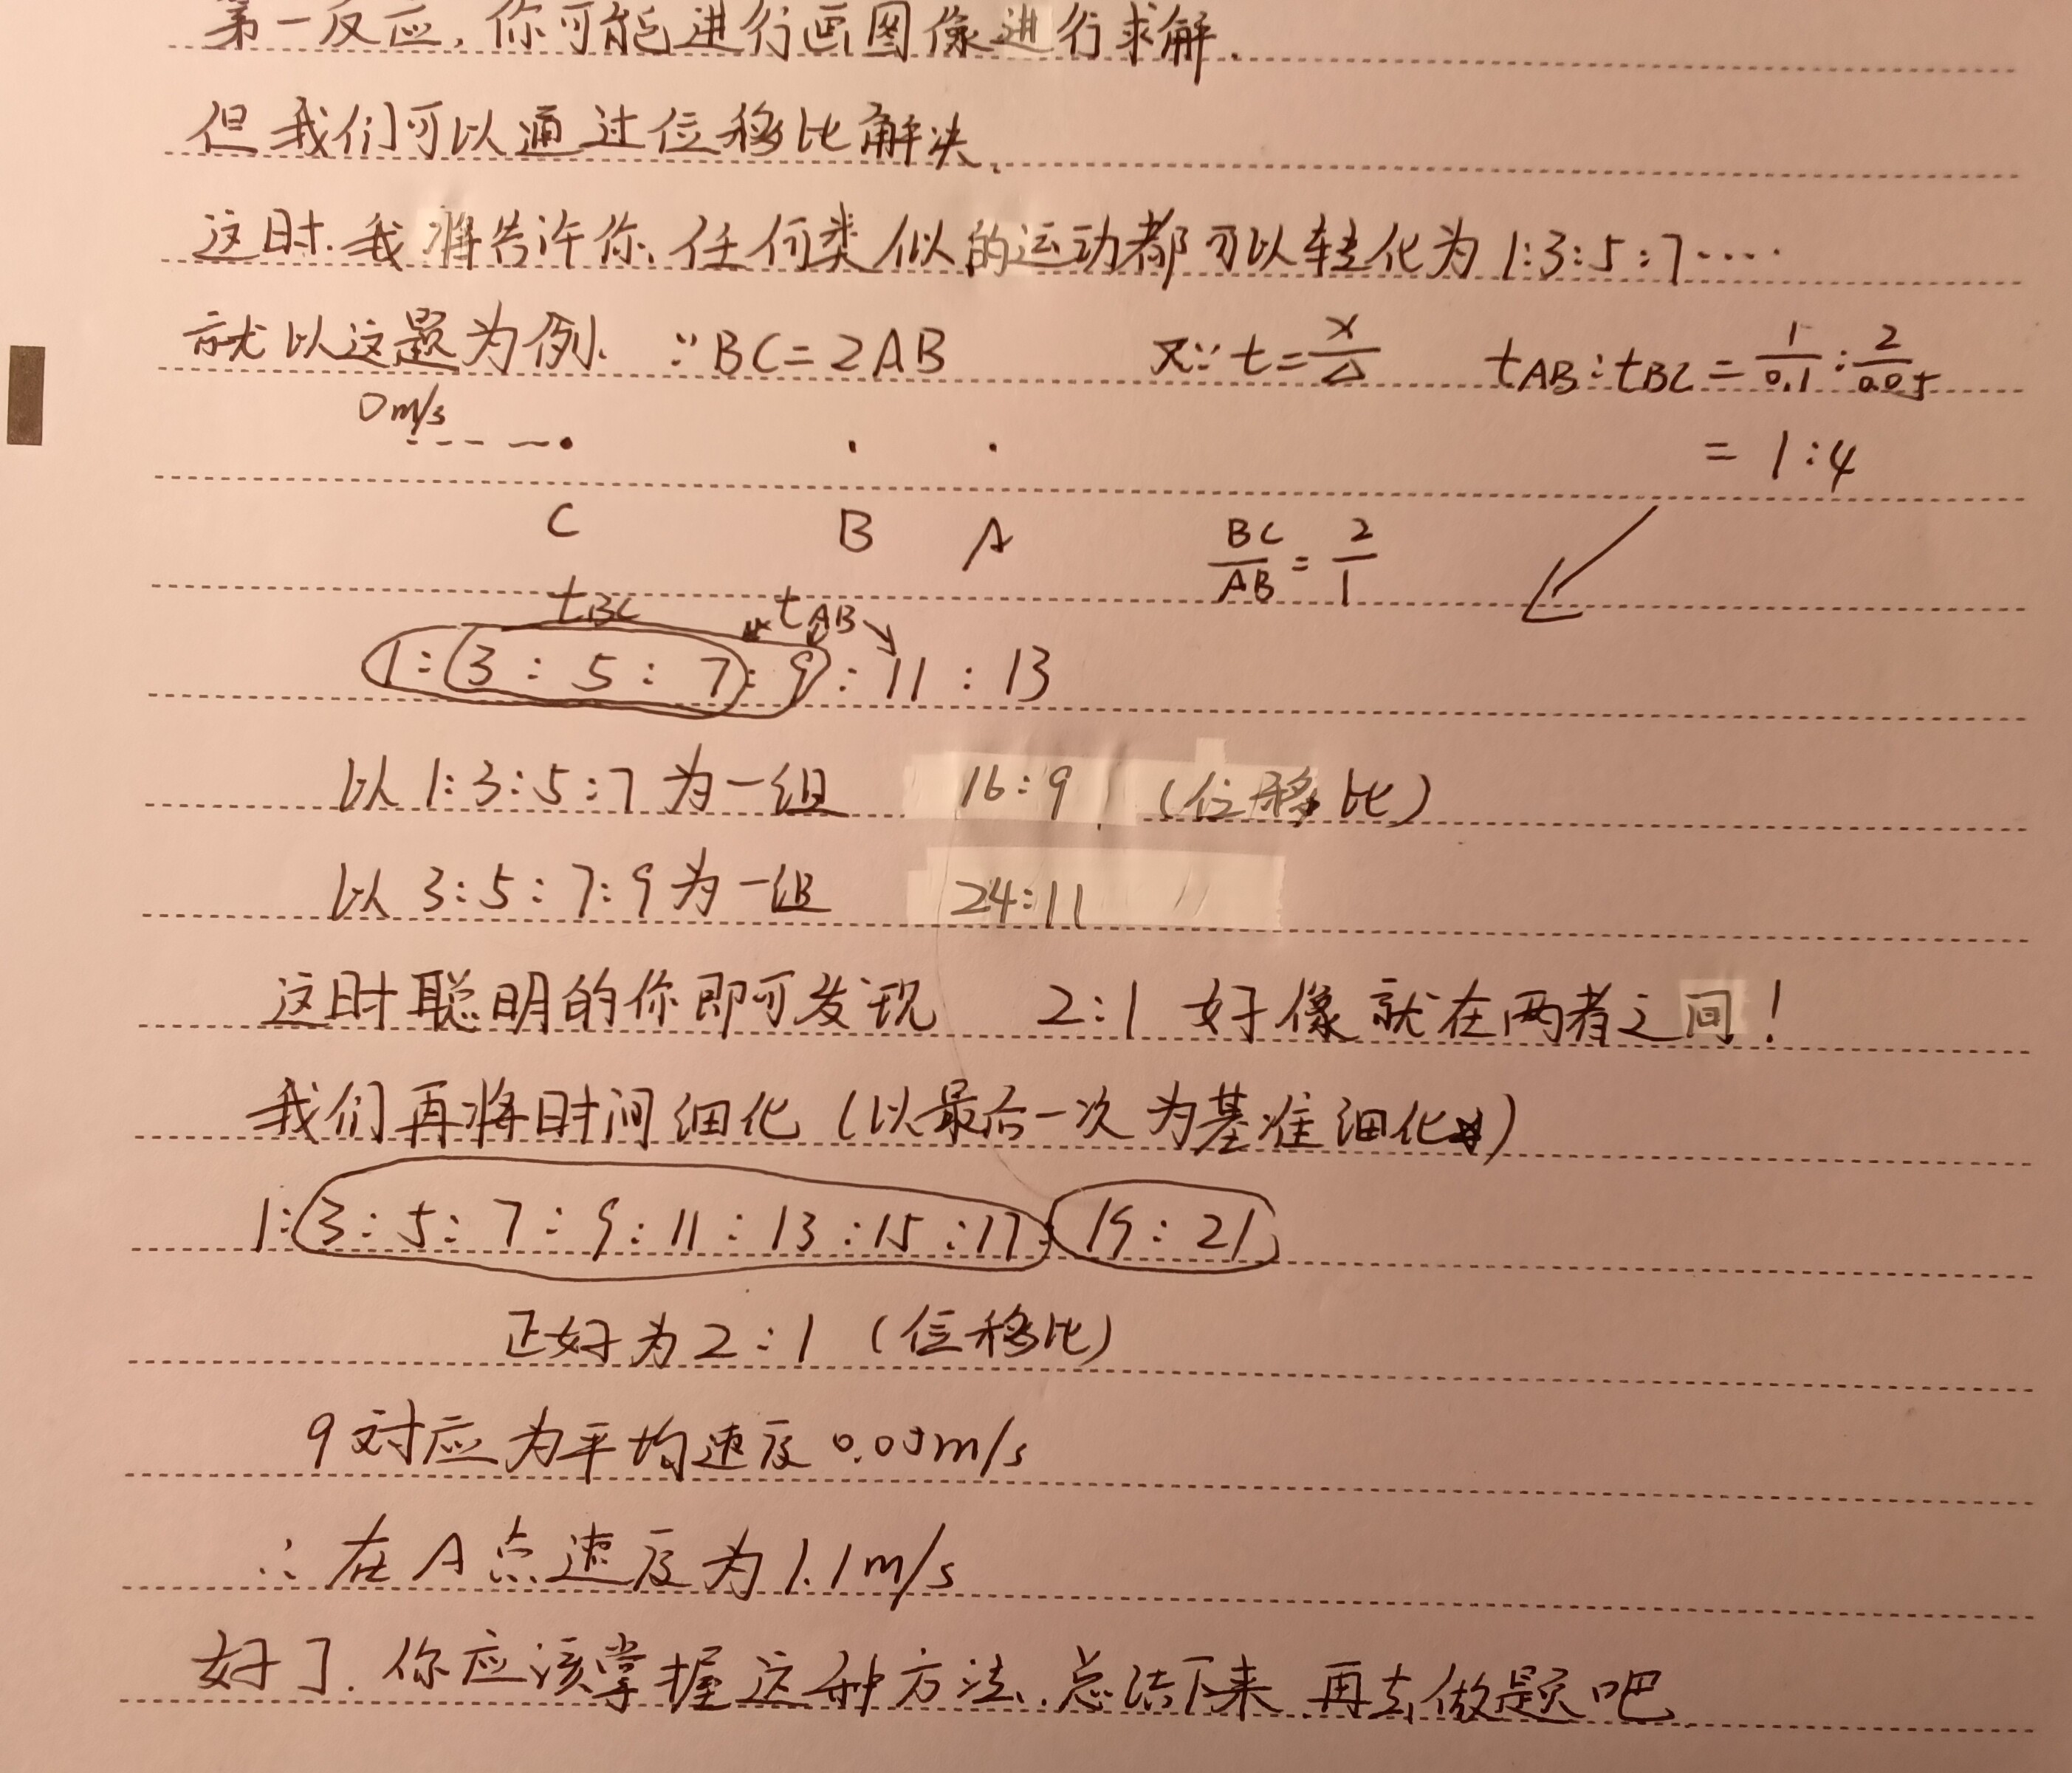 第一反应,你可能进行画图像进行求解.
但我们可以通过位移比解决.
这时.我将告许你.任何类似的运动都可以转化为1:3:5:7....
就以这题为例. ∵BC=2AB 又∵t=x/Δ tAB:tBC=1/0.1:2/0.05
0m/s
=1:4
C B A BC/AB=2/1
tBC tAB
1:3:5:7:9:11:13
以1:3:5:7为一组 16:9 (位移比)
以3:5:7:9为一组 24:11 〃
这时聪明的你即可发现 2:1 好像就在两者之间!
我们再将时间细化(以最后一次为基准细化)
1:3:5:7:9:11:13:15:17:19:21
正好为2:1 (位移比)
9对应为平均速度0.05m/s
∴在A点速度为1.1m/s
好了.你应该掌握这种方法.总结下来.再去做题吧